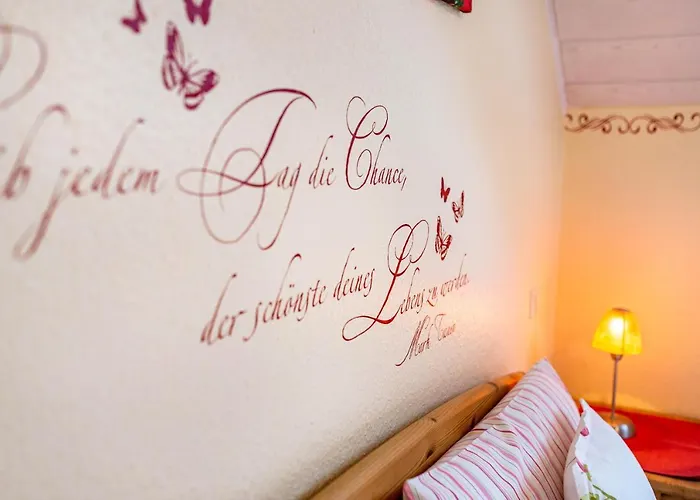 eb jedem Tag die Chance,
der schönste deines Lebens zu werden.
Mark Twain